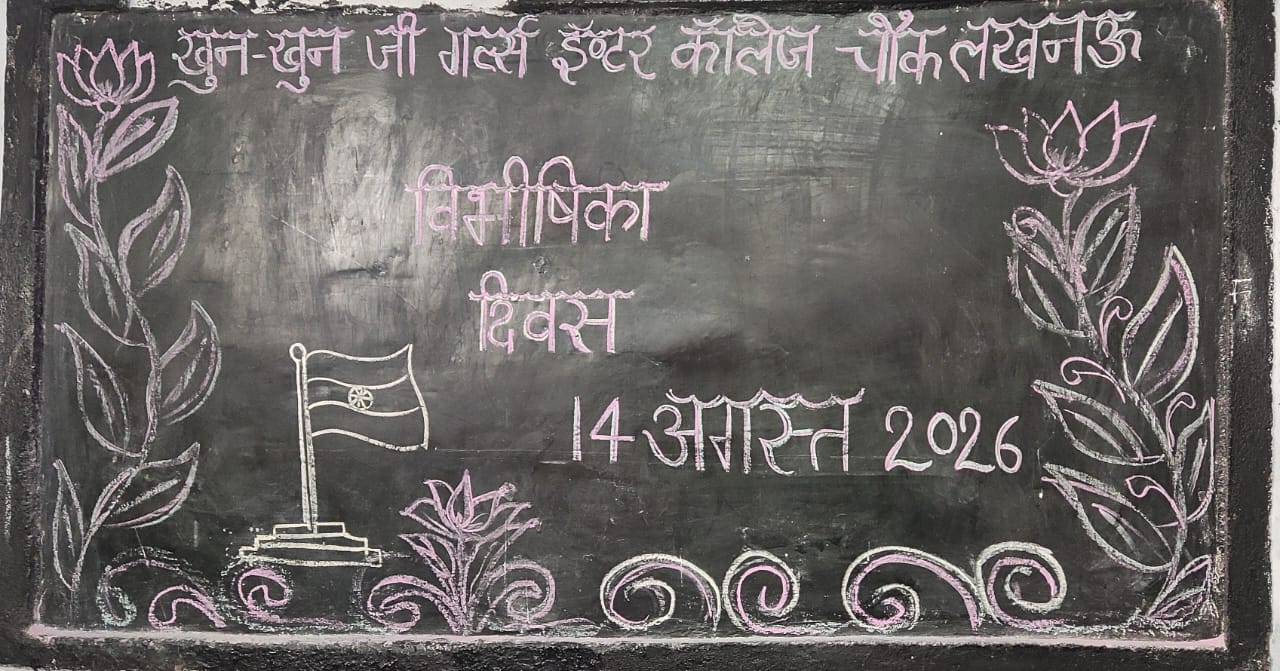 खुन-खुन जी गर्ल्स इण्टर कॉलेज चौंक लखनऊ
विभीषिका
दिवस
14 अगस्त 2026